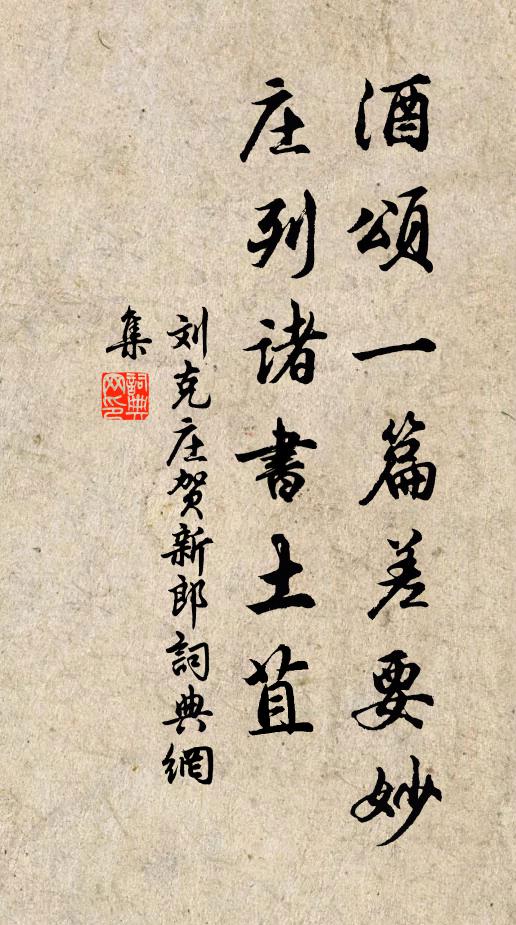 酒頌一篇差要妙
庄列诸書土苴
刘克庄贺新郎詞典網
集
詞典网印